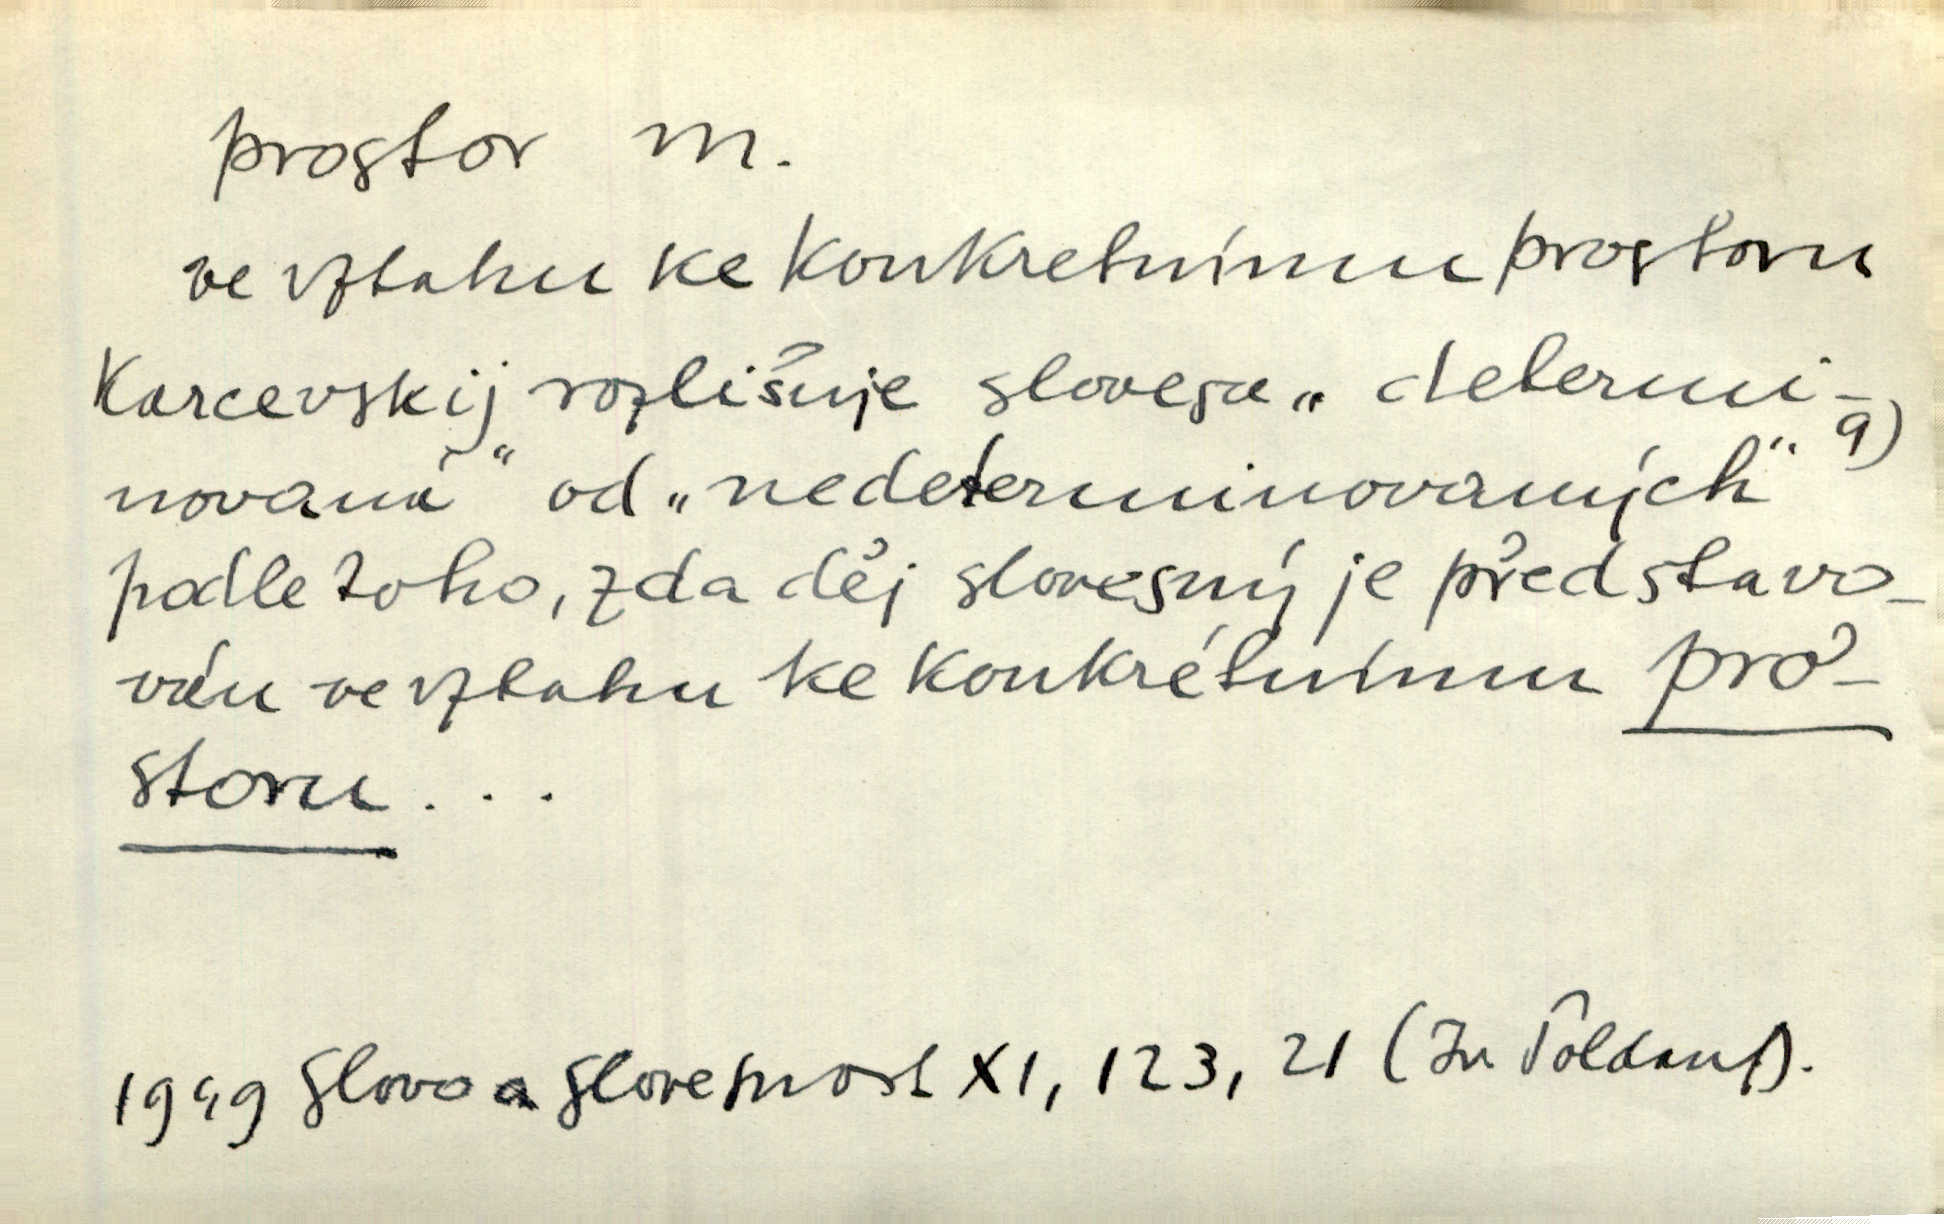 prostor m.
ve vztahu ke konkretnímu prostoru
Karcevskij rozlišuje slovesa „determi-
novaná“ od „nedeterminovaných“ 9)
podle toho, zda děj slovesný je představo-
ván ve vztahu ke konkrétnímu pro-
storu...
1949 Slovo a slovesnost XI, 123, 21 (Iv Poldauf).